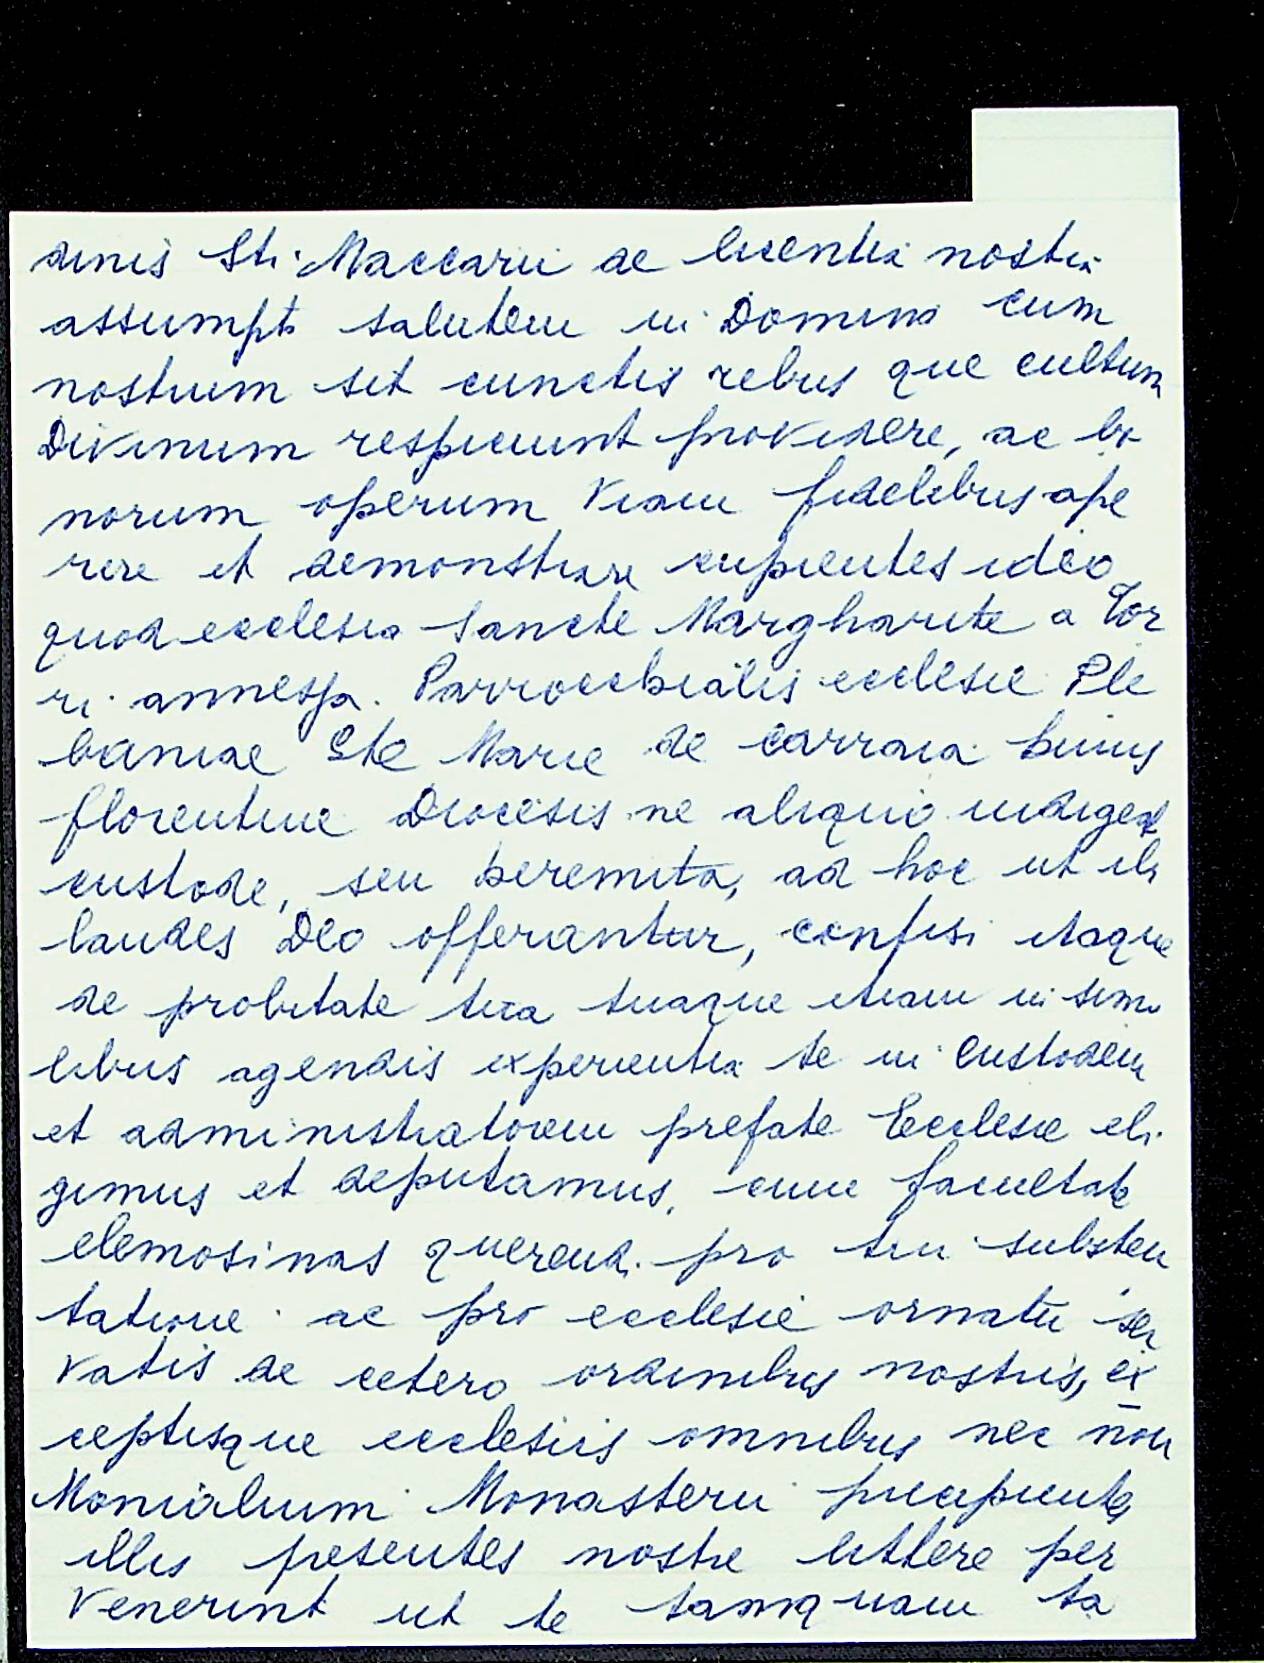 dinis Sti Maccarii de licentia nostra
assumpto salutem in Domino cum
nostrum sit cunctis rebus que cultum
Divinum respiciunt providere, ac bo
norum operum viam fidelibus ape
rire et demonstrare cupientes ideo
quod ecclesia Sancte Margharite a Tor
ri annessa Parrocchialis ecclesie Ple
baniae Ste Marie de Carraia huius
florentine Diocesis ne aliquo indigeat
custode, seu heremita, ad hoc ut ibi
laudes Deo offerantur, confisi itaque
de probitate tua tuaque etiam in simi
libus agendis experientia te in Custodem
et administratorem prefate Ecclesie eli
gimus et deputamus, cum facultate
elemosinas querendi pro tui substen
tatione ac pro ecclesie ornatu ser
vatis de cetero ordinibus nostris, ex
ceptisque ecclesiis omnibus nec non
Monialium Monasteriis precipientes
illis presentes nostre littere per
venerint ut te tamquam ta